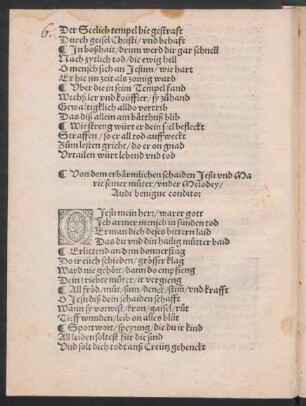 6.
Der Seelich tempel hie gestrafft
Durch geisel Christi/ vnd behafft
¶ In boßhait/ drum werd dir gar schnell
Nach zytlich tod/ die ewig hell
O mensch sich an Jesum/ wie hart
Er hie im zeit als zornig ward
¶ Vber die in seim Tempel fand
Wechßler vnd köuffler/ sy zůhand
Gewaltigklich alldo vertrib
Das diß allein am bätthuß blib
¶ Wie streng würt er dein seel befleckt
Straffen/ so er all tod aufferweckt
Zům lesten gricht/ do er on gnad
Vrtailen würt lebend vnd tod
¶ Von dem erbärmlichen schaiden Jesu vnd Ma
rie seiner můter/ vnder Melodey/
Audi benigne conditor
O Jesu mein herr/ warer gott
Ich armer mensch in sünden tod
Erman dich deßs bittern laid
Das du vnd din hailig můtter baid
¶ Erlittend an dem donnerstag
Do ir euch schieden/ grösser klag
Ward nie gehört/ dann do empfieng
Dein triebte můter/ ir vergieng
¶ All fröd/ můt/ sinn/ denck/ stim/ vnd krafft
O Jesu diß dein schaiden schafft
Wann sy vorwißt/ kron/ gaisel/ růt
Tieff wunden/ leib on alles blůt
¶ Spottwort/ speyung/ die du ir kind
All leiden soltest für die sind
Vnd solt dich todt anß Creütz gehenckt